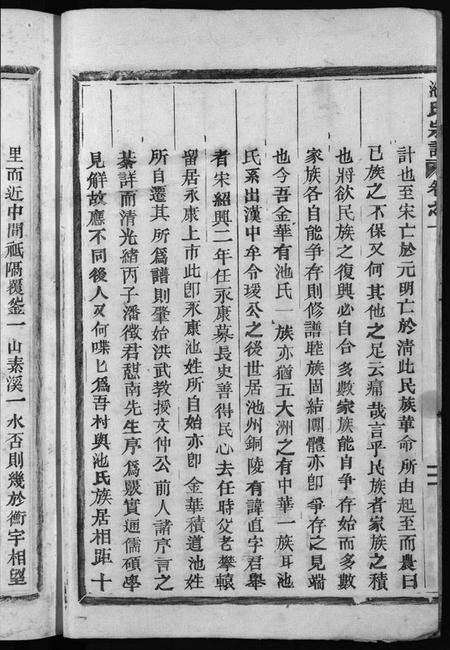 池氏宗譜 卷之一
計也至宋亡於元明亡於淸此民族革命所由起至而農曰
己族之不保又何其他之足云痛哉言乎民族者家族之積
也將欲民族之復興必自合多數家族能自爭存始而多數
家族各自能爭存則修譜睦族固結團體亦卽爭存之見端
也今吾金華有池氏一族亦猶五大洲之有中華一族耳池
氏系出漢中牟令瑗公之後世居池州銅陵有諱直字君舉
者宋紹興二年任永康幕長史善得民心去任時父老攀轅
留居永康上市此卽永康池姓所自始亦卽金華積道池姓
所自遷其所爲譜則肇始洪武教授文仲公前人諸序言之
綦詳而清光緒丙子潘徵君慰南先生序爲嚴實通儒碩學
見解故應不同後人又何喋匕爲吾村與池氏族居相距十
里而近中間祗隔覆釜一山素溪一水否則幾於衡宇相望